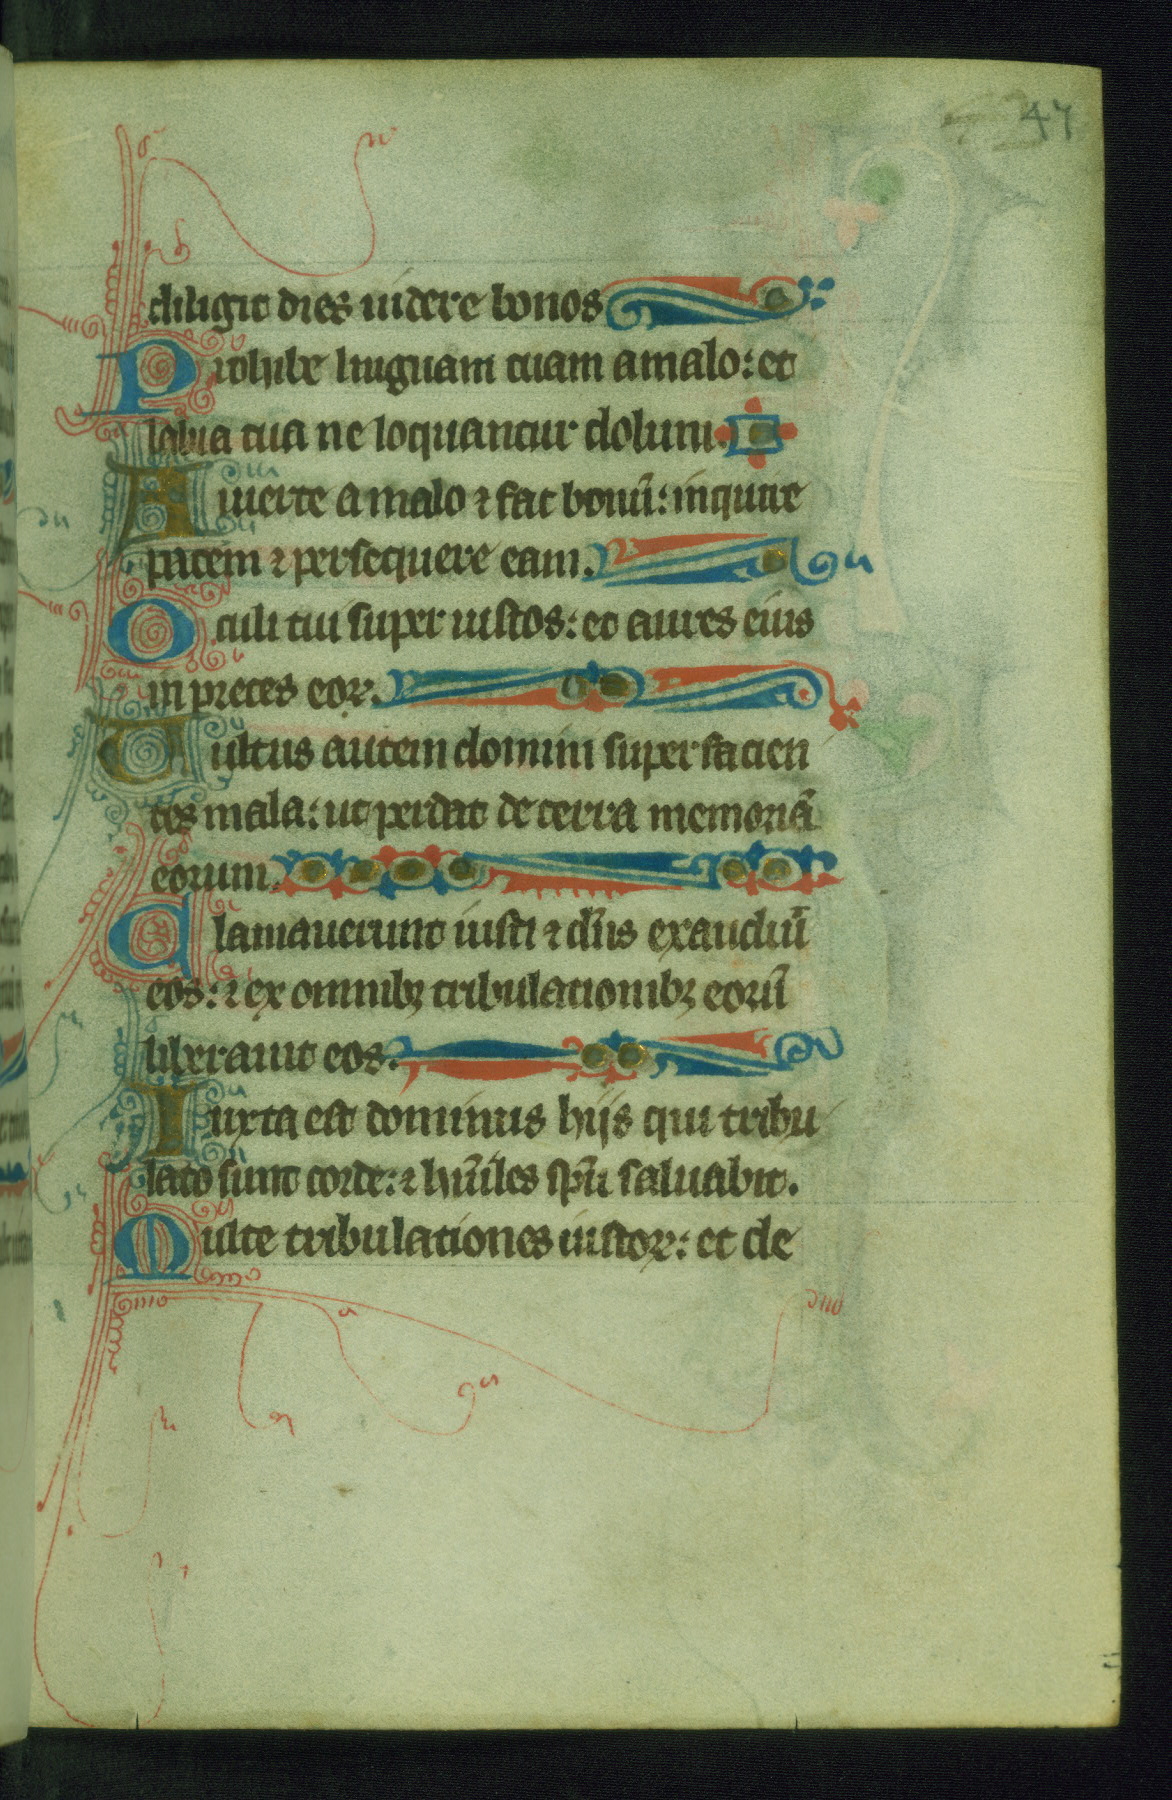 47
diligit dies uidere bonos
Prohibe linguam tuam a malo: et
labia tua ne loquantur dolum.
Auerte a malo ⁊ fac bonū: inquire
pacem ⁊ persequere eam.
Oculi tui super iustos: et aures eius
in preces eoꝝ.
Uultus autem domini super facien
tes mala: ut perdat de terra memoriā
eorum.
Clamauerunt iusti ⁊ dn̄s exaudiuū
eos: ⁊ ex omnibꝫ tribulationibꝫ eorū
liberauit eos.
Iuxta est dominus hijs qui tribu
lato sunt corde: ⁊ hūiles sp̄u saluabit.
Multe tribulationes iustoꝝ: et de